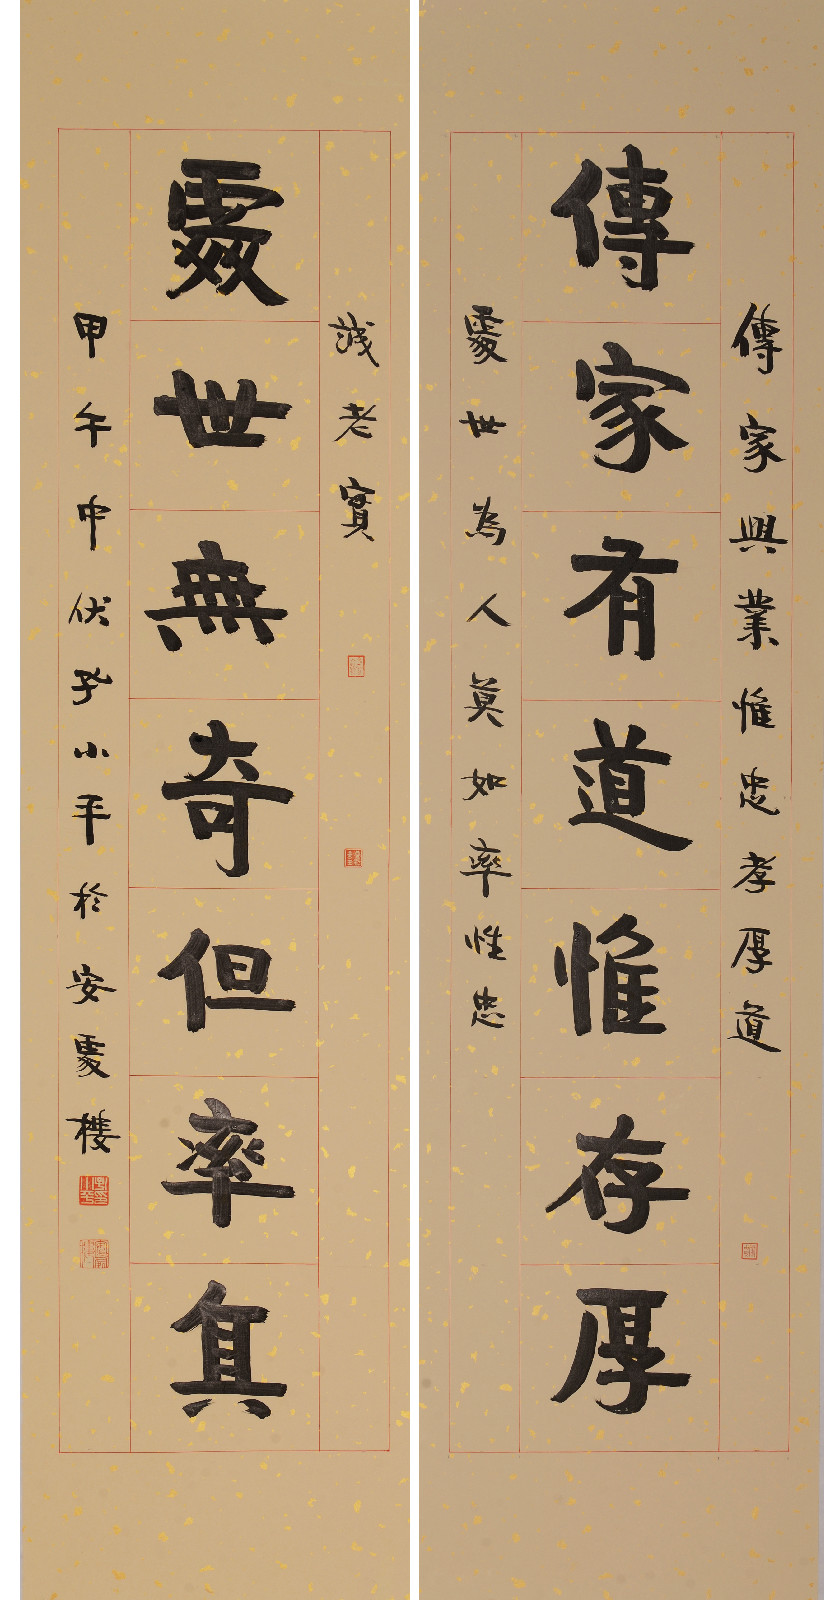 傳家興業惟忠孝厚道
傳家有道惟存厚
處世為人莫如率性忠
誠老實
處世無奇但率真
甲午中伏孕小平於安處樓